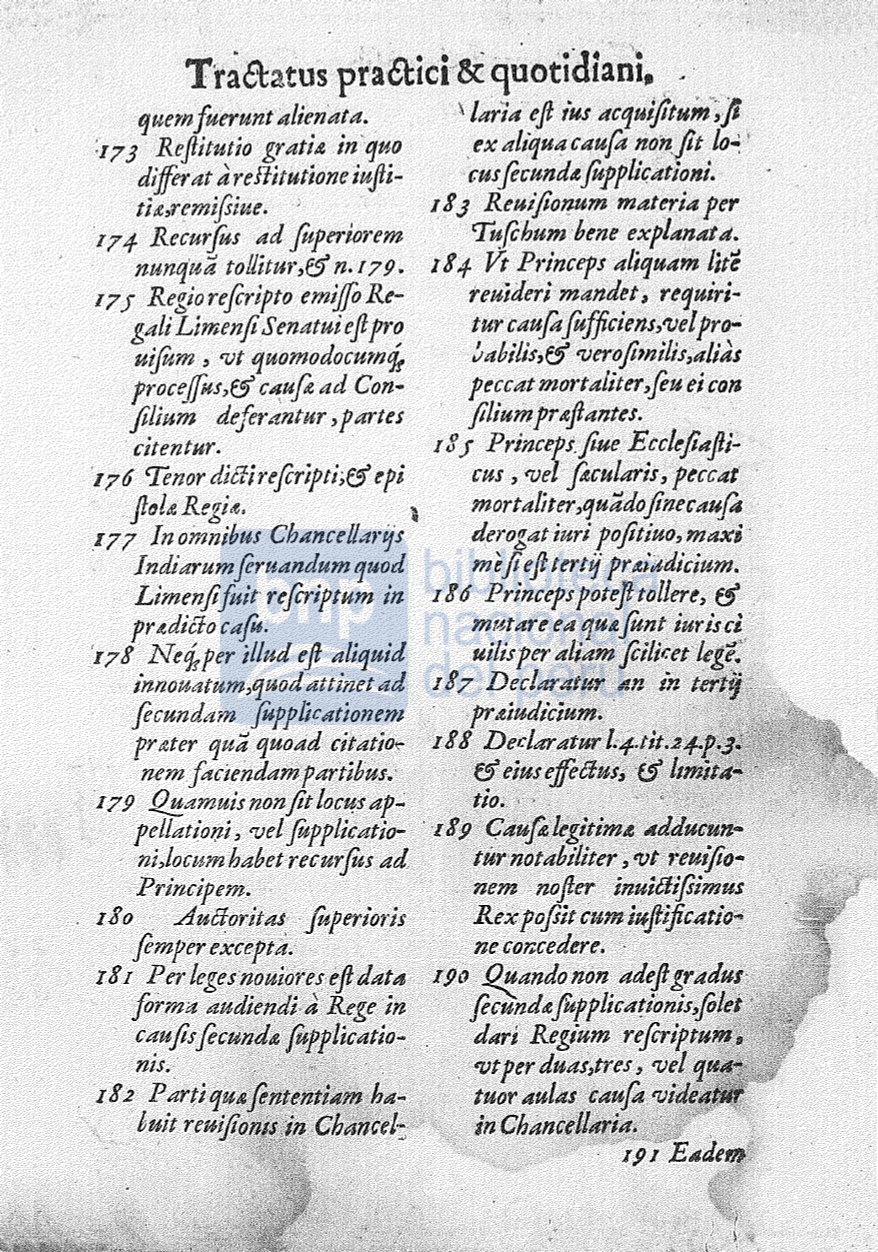 Tractatus practici & quotidiani.
quem fuerunt alienata.
173 Reſtitutio gratiæ in quo
differat à reſtitutione iuſti-
tiæ,remiſsiue.
174 Recurſus ad ſuperiorem
nunquã tollitur,& n.179.
175 Regio reſcripto emiſſo Re-
gali Limenſi Senatui eſt pro
uiſum , vt quomodocumq́;
proceſſus,& cauſæ ad Con-
ſilium deferantur , partes
citentur.
176 Tenor dicti reſcripti,& epi
ſtolæ Regiæ.
177 In omnibus Chancellarijs
Indiarum ſeruandum quod
Limenſi fuit reſcriptum in
prædicto caſu.
178 Neq́; per illud eſt aliquid
innouatum,quod attinet ad
ſecundam ſupplicationem
præter quã quoad citatio-
nem faciendam partibus.
179 Quamuis non ſit locus ap-
pellationi , vel ſupplicatio-
ni,locum habet recurſus ad
Principem.
180 Auctoritas ſuperioris
ſemper excepta.
181 Per leges nouiores eſt data
forma audiendi à Rege in
cauſis ſecundæ ſupplicatio-
nis.
182 Parti quæ ſententiam ha-
buit reuiſionis in Chancel-
laria eſt ius acquiſitum , ſi
ex aliqua cauſa non ſit lo-
cus ſecundæ ſupplicationi.
183 Reuiſionum materia per
Tuſchum bene explanata.
184 Vt Princeps aliquam litẽ
reuideri mandet , requiri-
tur cauſa ſufficiens,vel pro-
babilis,& veroſimilis,aliàs
peccat mortaliter,ſeu ei con
ſilium præſtantes.
185 Princeps ſiue Eccleſiaſti-
cus , vel ſæcularis, peccat
mortaliter,quãdo ſine cauſa
derogat iuri poſitiuo, maxi
me ſi eſt tertij præiudicium.
186 Princeps poteſt tollere, &
mutare ea quæ ſunt iuris ci
uilis per aliam ſcilicet legẽ.
187 Declaratur an in tertij
præiudicium.
188 Declaratur l.4.tit.24.p.3.
& eius effectus, & limita-
tio.
189 Cauſæ legitimæ adducun-
tur notabiliter , vt reuiſio-
nem noſter inuictiſsimus
Rex poſsit cum iuſtificatio-
ne concedere.
190 Quando non adeſt gradus
ſecundæ ſupplicationis,ſolet
dari Regium reſcriptum,
vt per duas,tres , vel qua-
tuor aulas cauſa videatur
in Chancellaria.
191 Eadem
bnp biblioteca
nacional
del perú